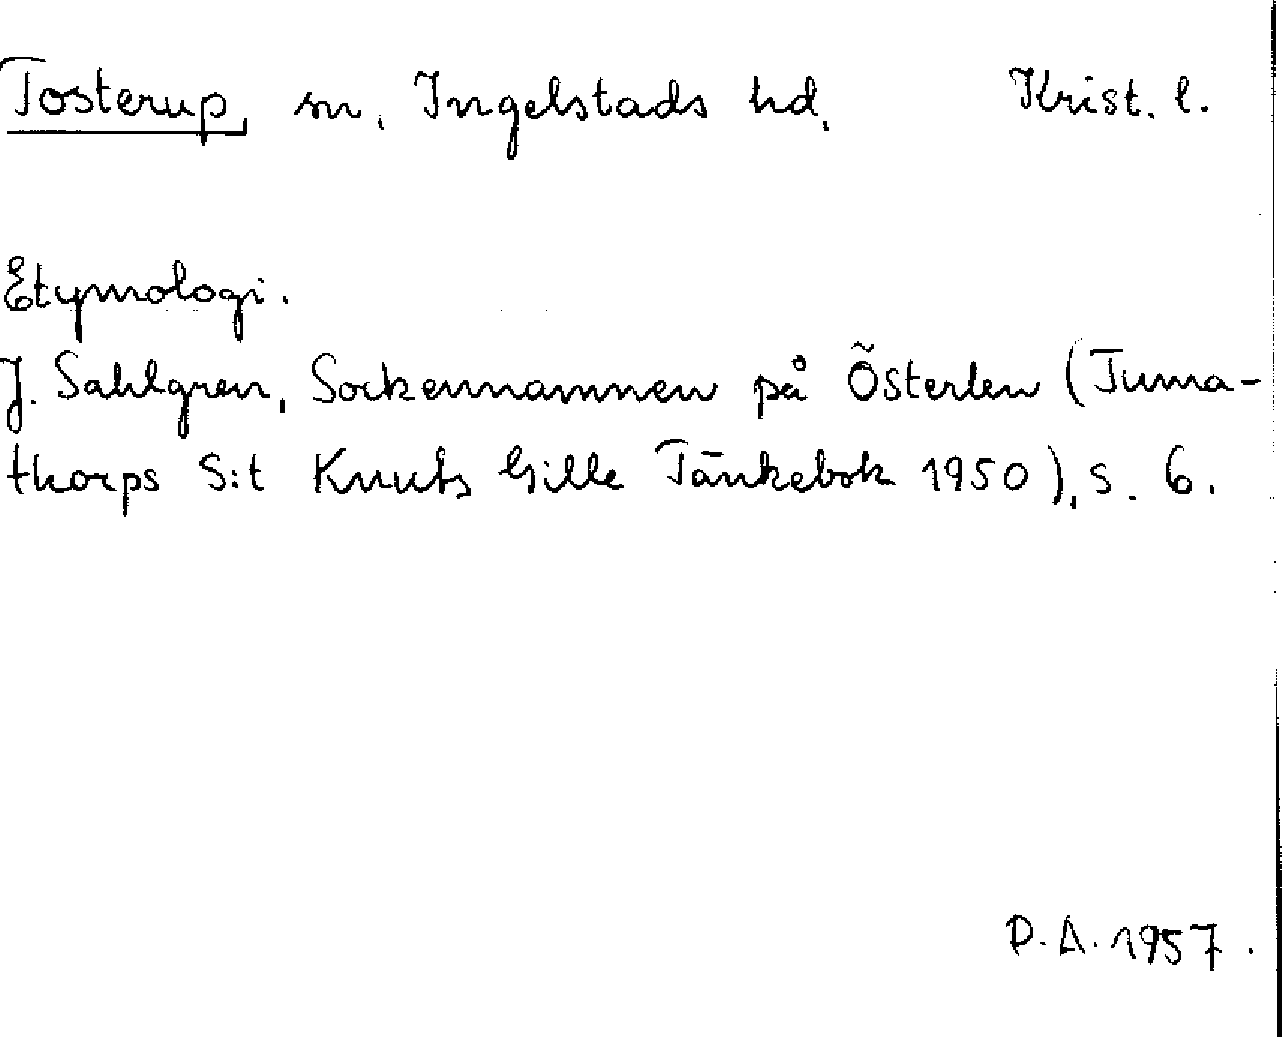 Tosterup, sn, Ingelstads hd, Krist. l.
Etymologi.
J. Sahlgren, Sockennamnen på Österlen (Tuma-
thorps S:t Knuts Gille Tänkebok 1950), s. 6.
P.A. 1957.